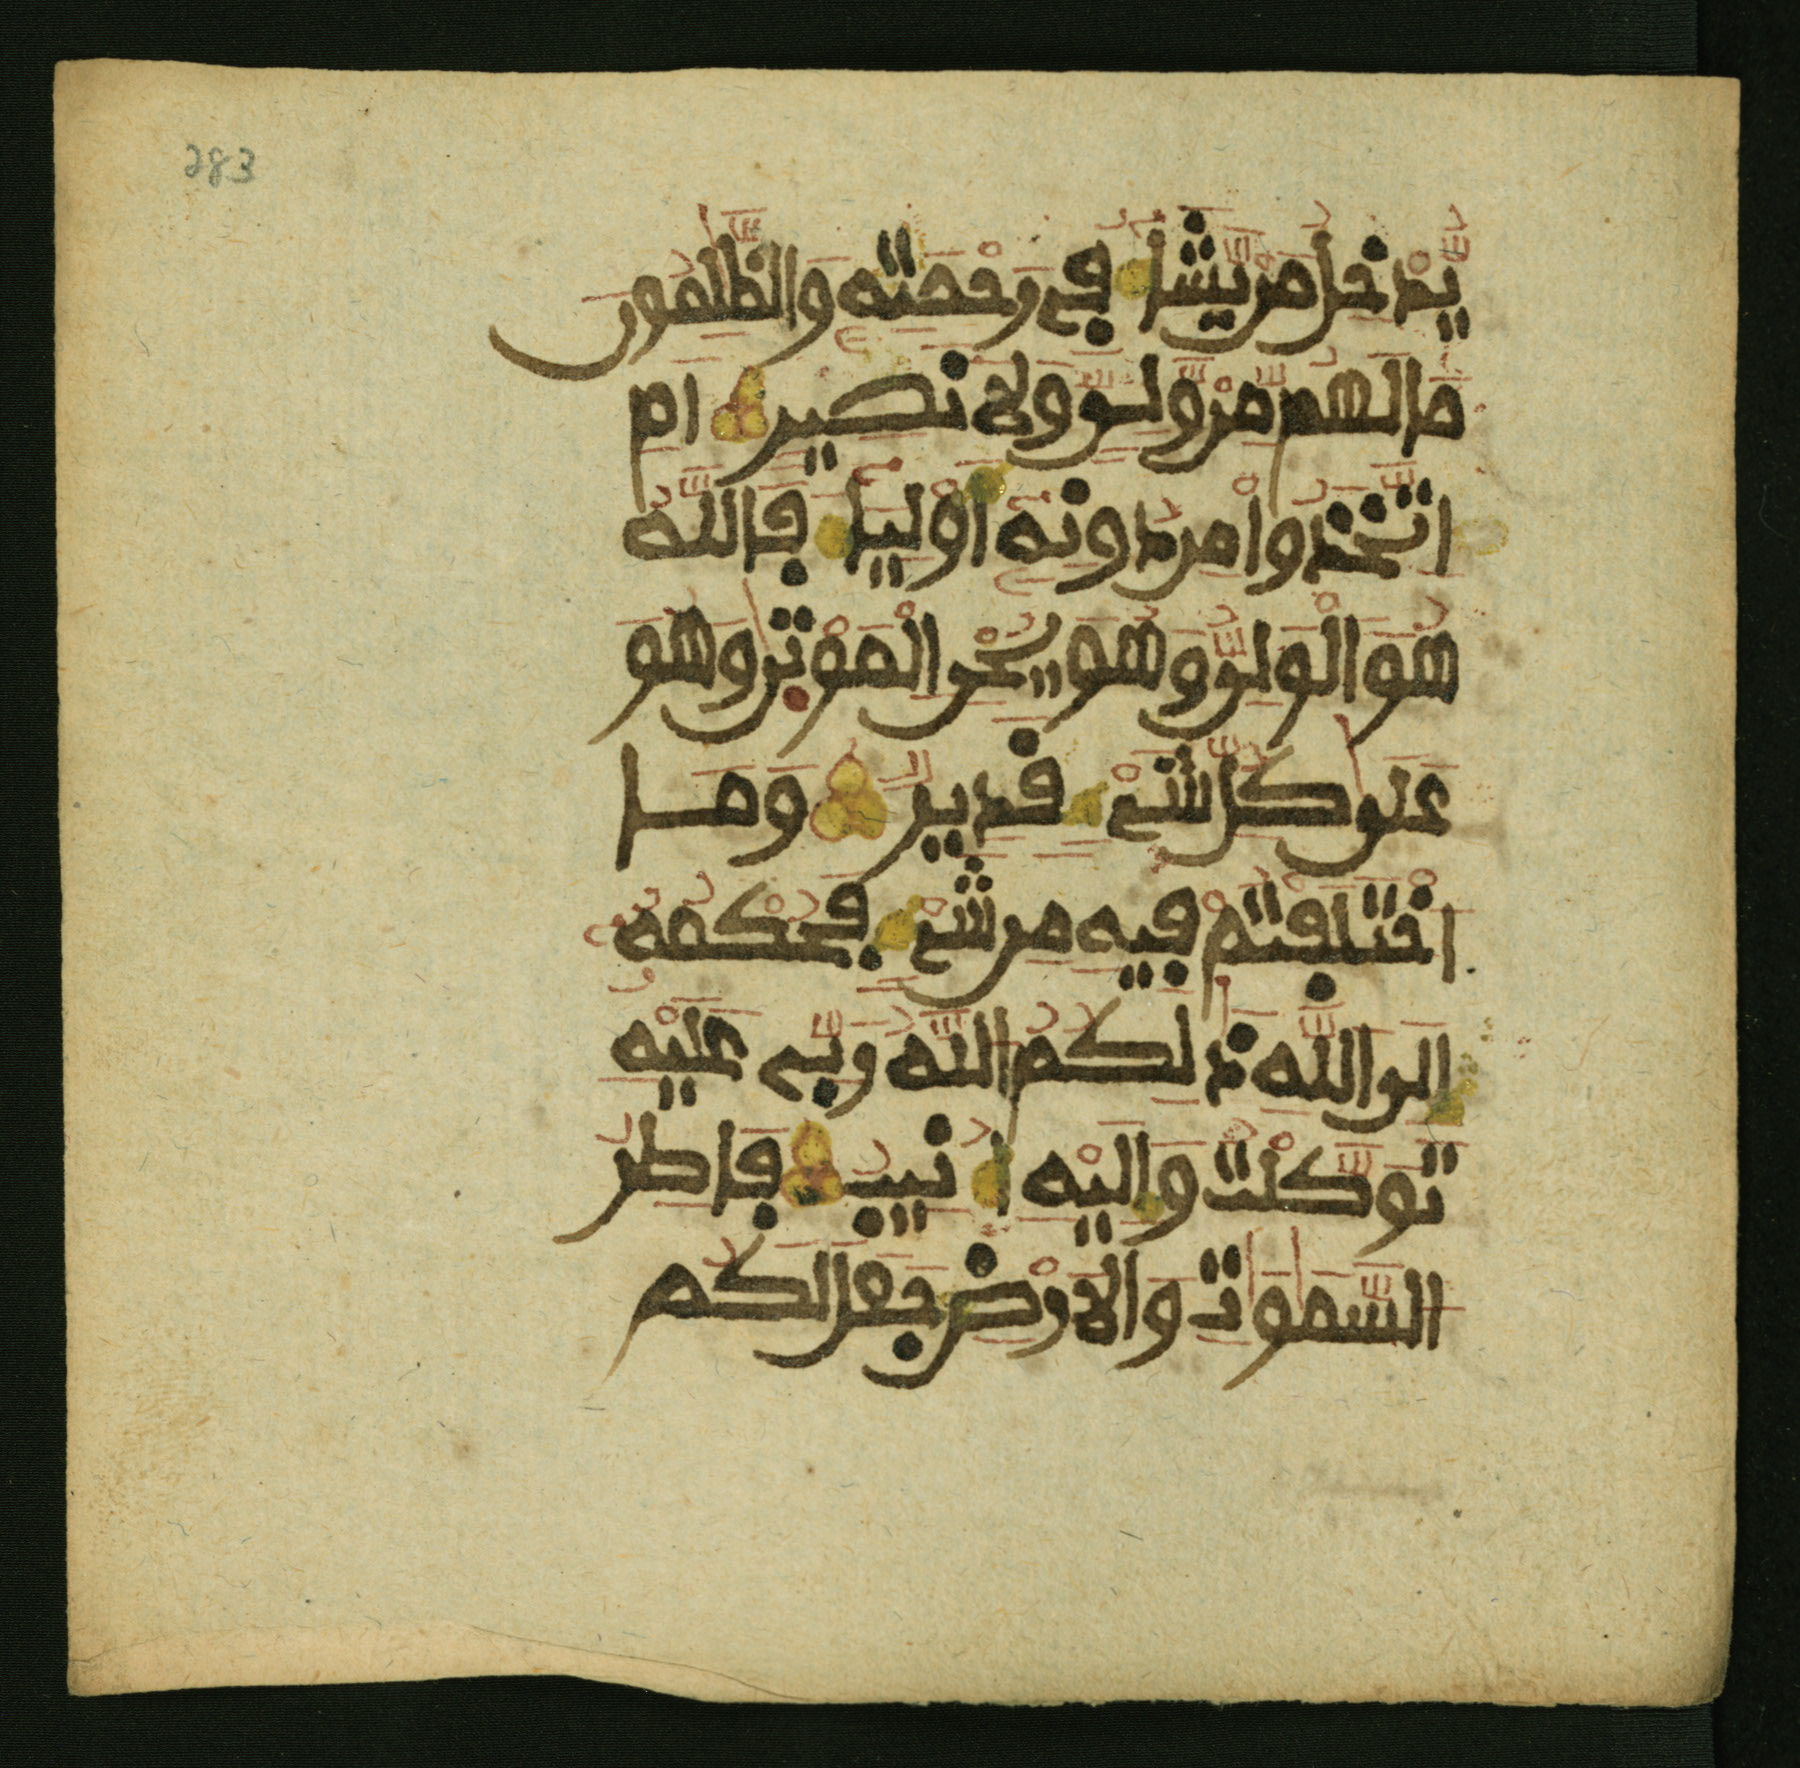 283
يدخل من يشا في رحمته والظلمون
ما لهم من ولي ولا نصير ام
اتخذوا من دونه اوليا فالله
هو الولي وهو يحي الموتى وهو
على كل شي قدير وما
اختلفتم فيه من شي فحكمه
الى الله ذلكم الله ربي عليه
توكلت واليه انيب فاطر
السموت والارض جعل لكم